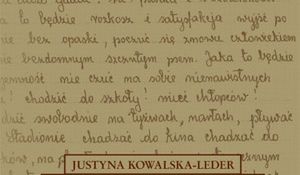 a to będzie rozkosz i satysfakcja wyjść po
nie bez opaski, poczuć się znowu człowiekiem
nie bezdomnym szczutym psem. Jaka to będzie
jemność nie czuć na sobie nienawistnych
! chodzić do szkoły! mieć chłopców!
dzić swobodnie na łyżwach, nartach, pływać
stadionie chadzać do kina chadzać do
ków, na p
JUSTYNA KOWALSKA-LEDER